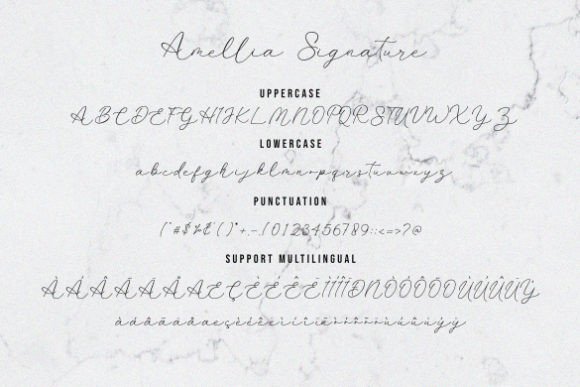 Amellia Signature
UPPERCASE
ABCDEFGHIJKLMNOPQRSTUVWXYZ
LOWERCASE
abcdefghijklmnopqrstuvwxyz
PUNCTUATION
!"#$%&'()*+,-./0123456789:;<=>?@
SUPPORT MULTILINGUAL
ÀÁÂÃÄÅÆÇÈÉÊËÌÍÎÏÐÑÒÓÔÕÖÙÚÛÜÝ
àáâãäåæçèéêëìíîïðñòóôõöùúûüýÿ